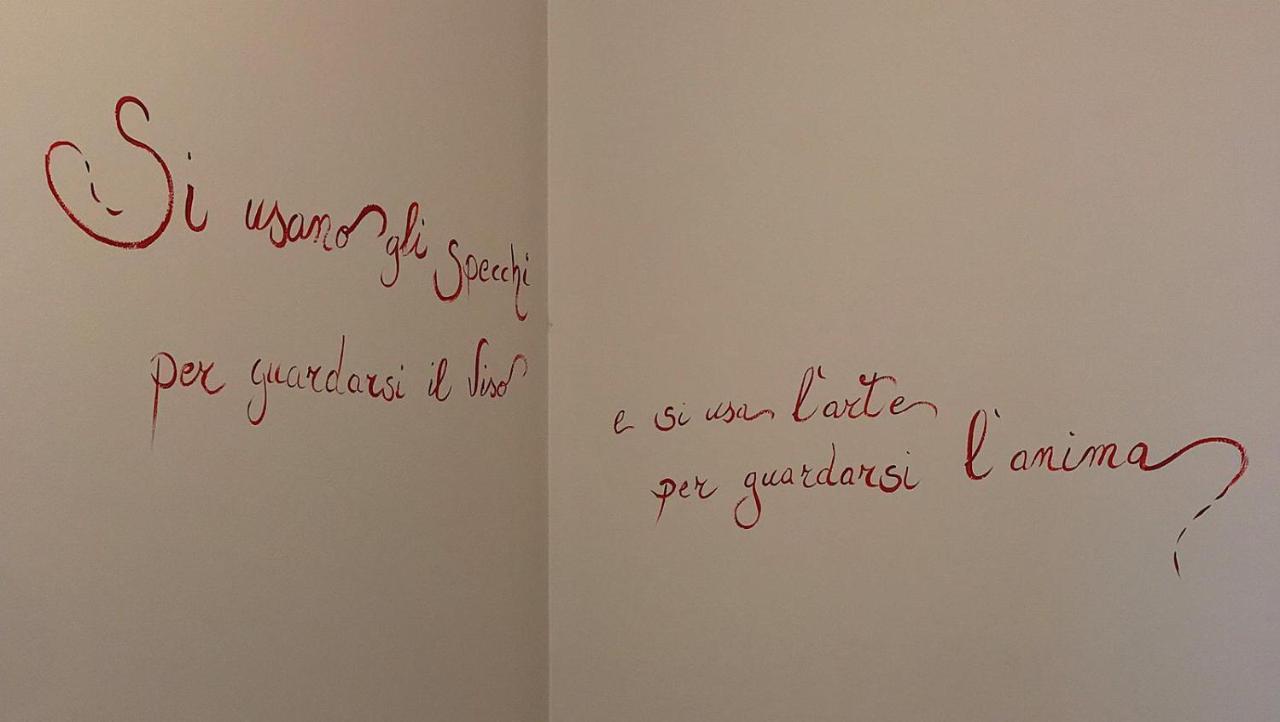 Si usano gli specchi
per guardarsi il viso
e si usa l'arte
per guardarsi l'anima